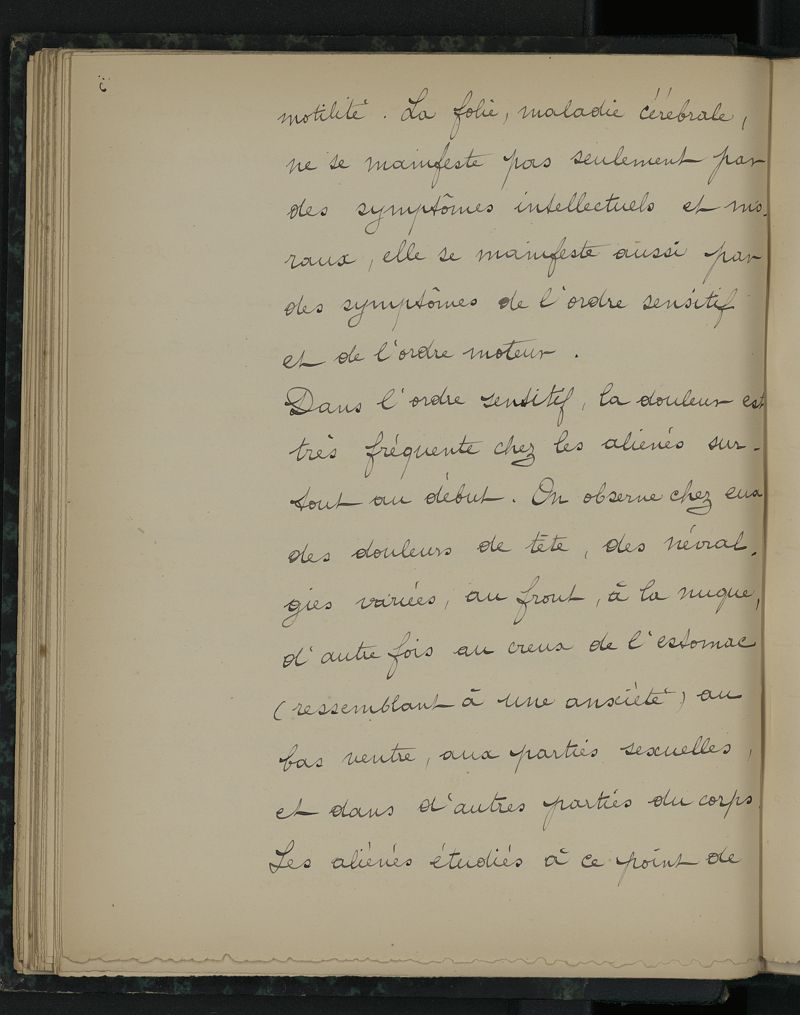 motilité. La folie, maladie cérébrale,
ne se manifeste pas seulement par
des symptômes intellectuels et mo-
raux, elle se manifeste aussi par
des symptômes de l'ordre sensitif
et de l'ordre moteur.
Dans l'ordre sensitif, la douleur est
très fréquente chez les aliénés sur-
tout au début. On observe chez eux
des douleurs de tête, des névral-
gies variées, au front, à la nuque,
d'autre fois au creux de l'estomac
(ressemblant à une anxiété) au
bas ventre, aux parties sexuelles,
et dans d'autres parties du corps.
Les aliénés étudiés à ce point de